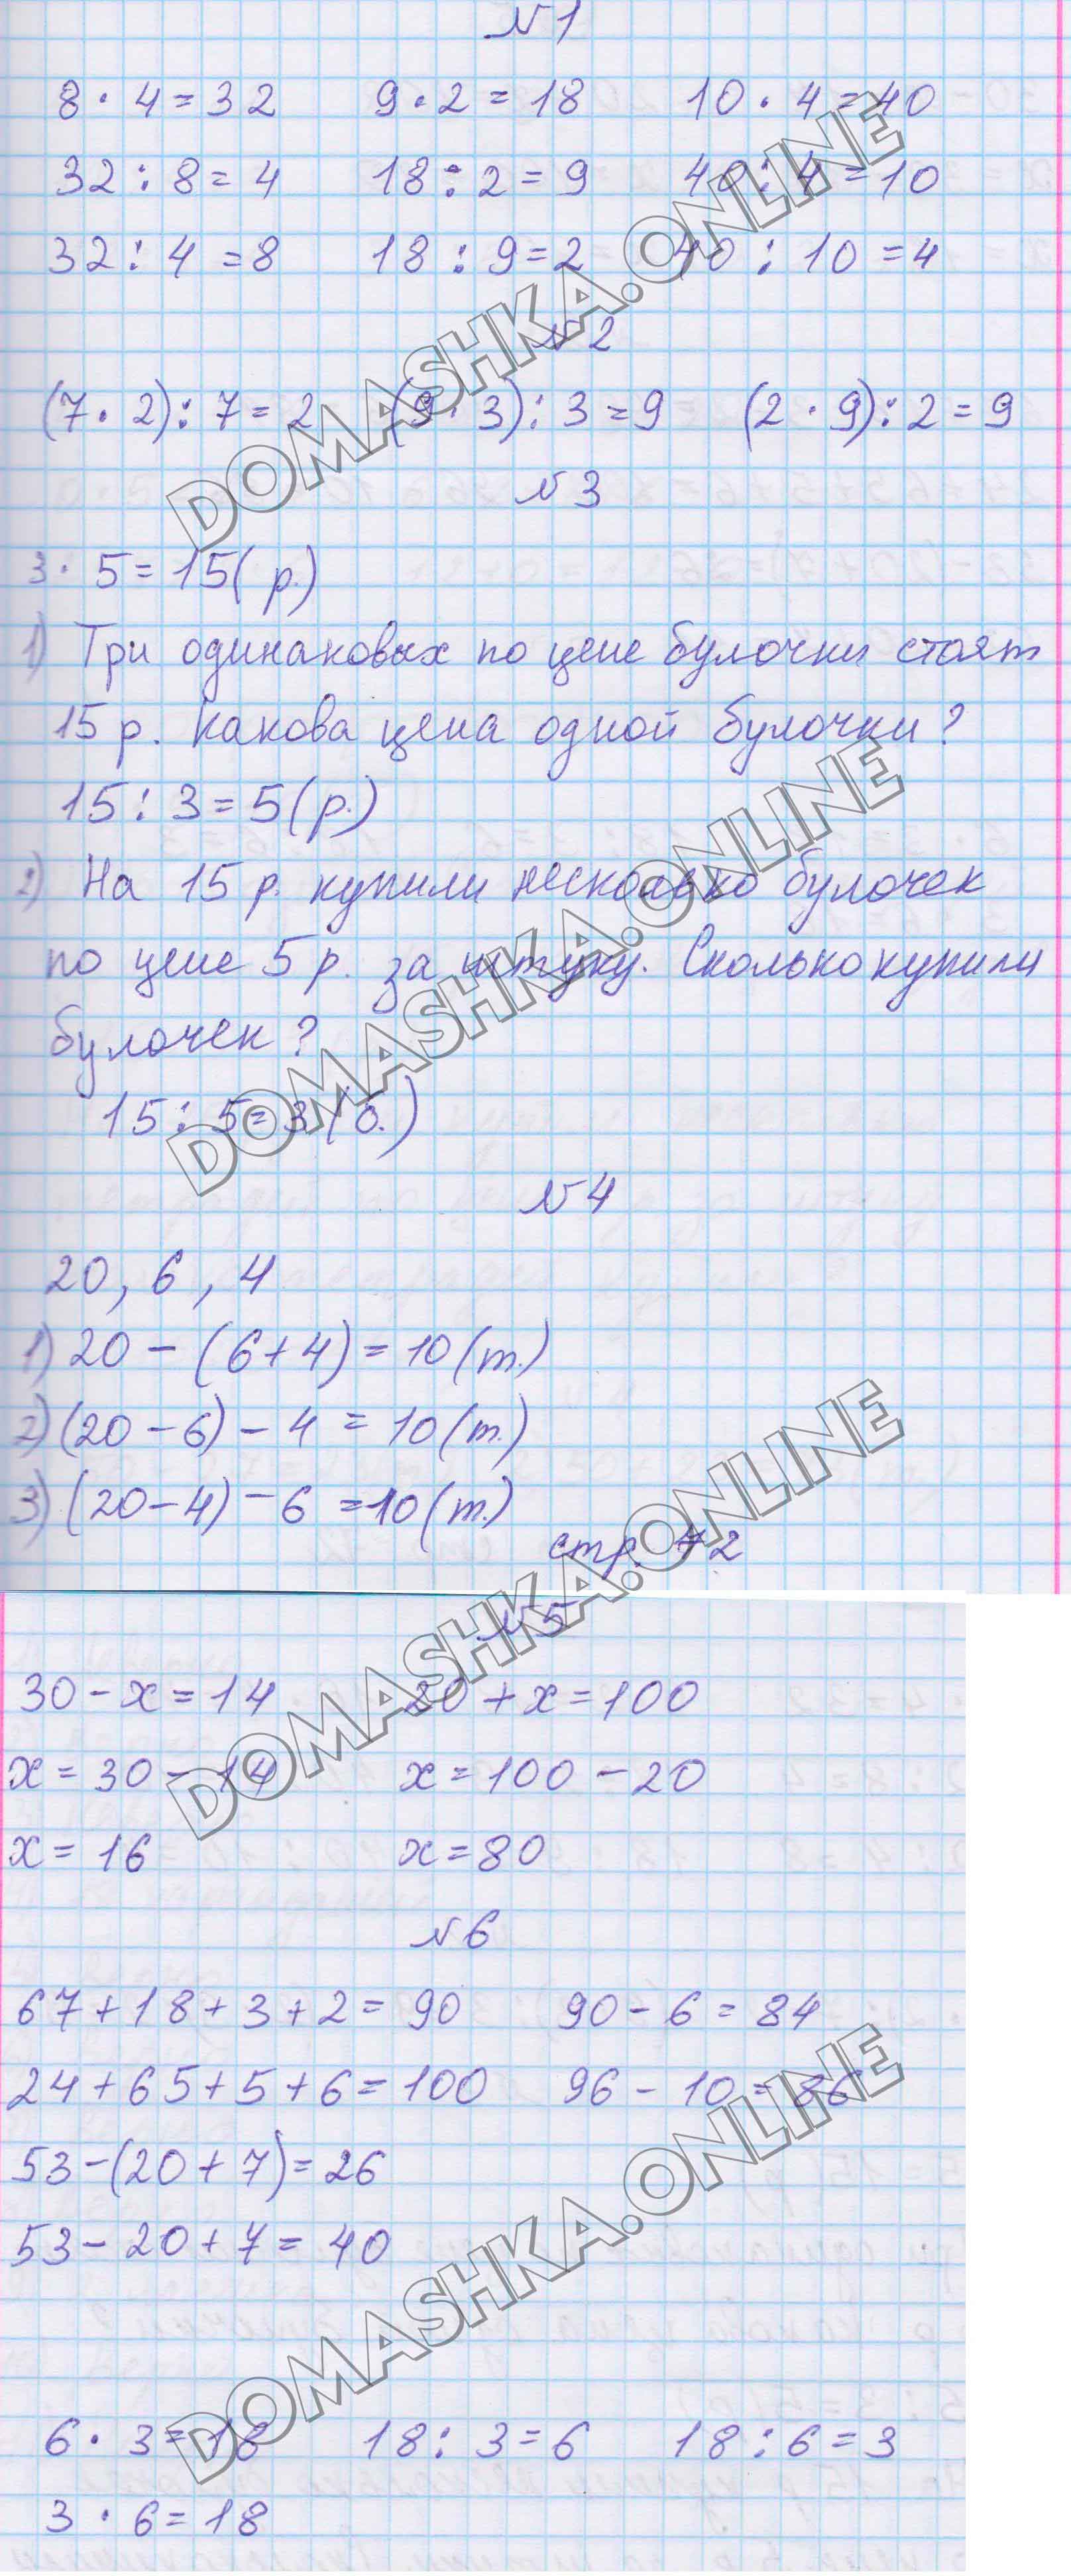 №1
8 · 4 = 32 9 · 2 = 18 10 · 4 = 40
32 : 8 = 4 18 : 2 = 9 40 : 4 = 10
32 : 4 = 8 18 : 9 = 2 40 : 10 = 4
№2
(7 · 2) : 7 = 2 (9 · 3) : 3 = 9 (2 · 9) : 2 = 9
№3
3 · 5 = 15 (р.)
1) Три одинаковых по цене булочки стоят
15 р. Какова цена одной булочки?
15 : 3 = 5 (р.)
2) На 15 р. купили несколько булочек
по цене 5 р. за штуку. Сколько купили
булочек?
15 : 5 = 3 (б.)
№4
20, 6, 4
1) 20 - (6 + 4) = 10 (т.)
2) (20 - 6) - 4 = 10 (т.)
3) (20 - 4) - 6 = 10 (т.)
стр. 72
№5
30 - х = 14 20 + х = 100
х = 30 - 14 х = 100 - 20
х = 16 х = 80
№6
67 + 18 + 3 + 2 = 90 90 - 6 = 84
24 + 65 + 5 + 6 = 100 96 - 10 = 86
53 - (20 + 7) = 26
53 - 20 + 7 = 40
6 · 3 = 18 18 : 3 = 6 18 : 6 = 3
3 · 6 = 18
DOMASHKA.ONLINE
DOMASHKA.ONLINE
DOMASHKA.ONLINE
DOMASHKA.ONLINE